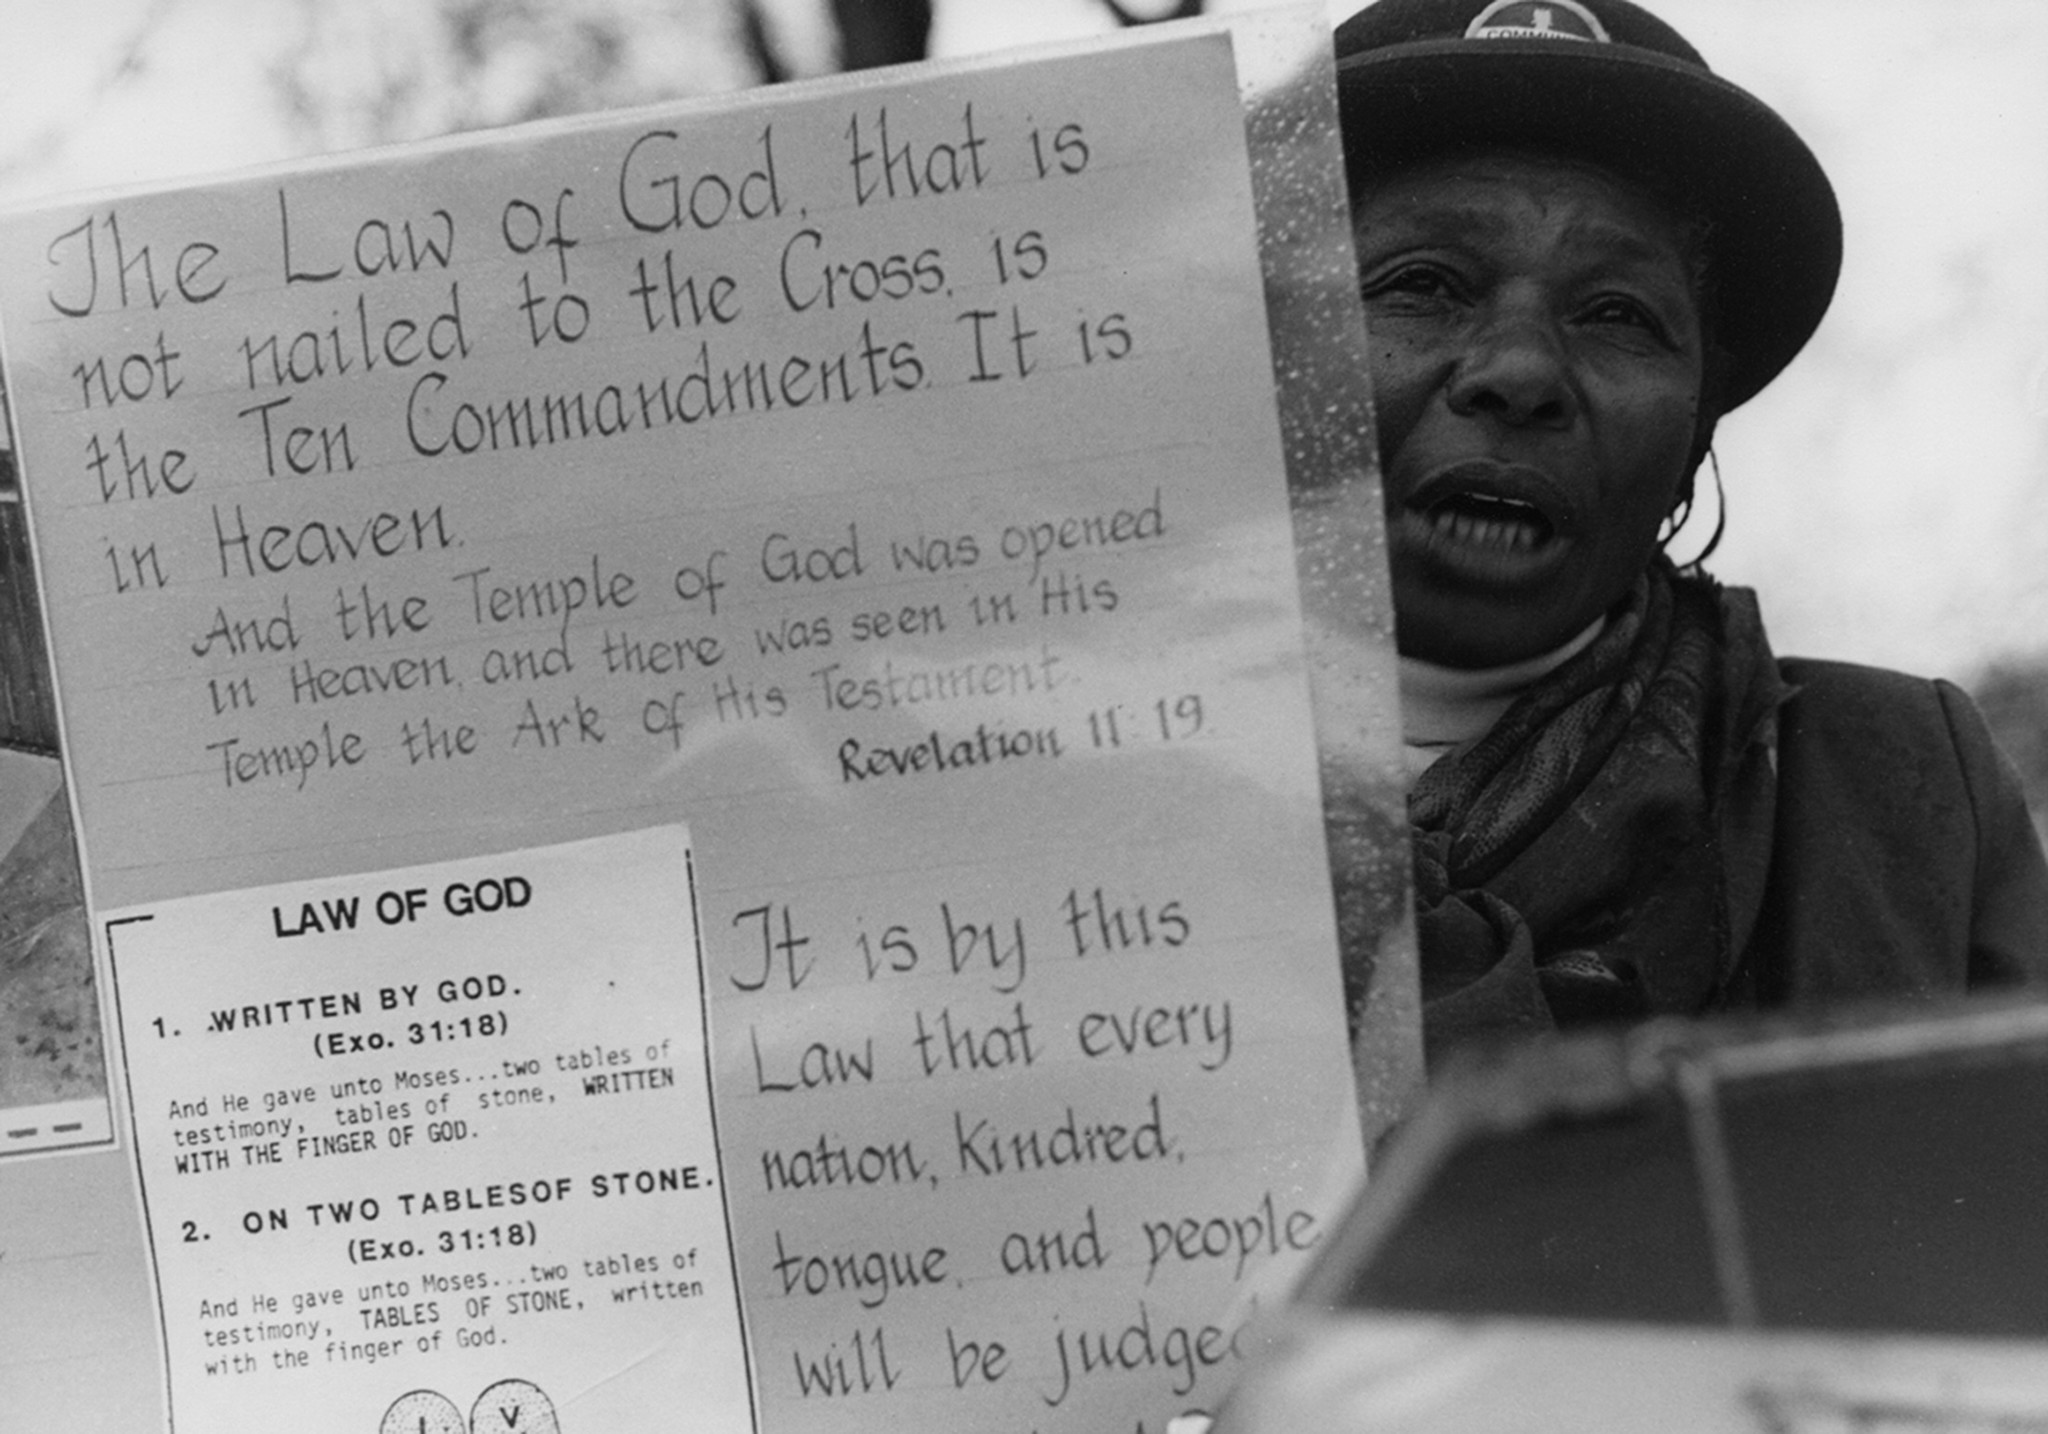 The Law of God, that is
not nailed to the Cross, is
the Ten Commandments. It is
in Heaven.
And the Temple of God was opened
in Heaven, and there was seen in His
Temple the Ark of His Testament.
Revelation 11:19.
LAW OF GOD
1. .WRITTEN BY GOD.
(Exo. 31:18)
And He gave unto Moses...two tables of
testimony, tables of stone, WRITTEN
WITH THE FINGER OF GOD.
2. ON TWO TABLESOF STONE.
(Exo. 31:18)
And He gave unto Moses...two tables of
testimony, TABLES OF STONE, written
with the finger of God.
I V
It is by this
Law that every
nation, kindred,
tongue, and people
will be judged